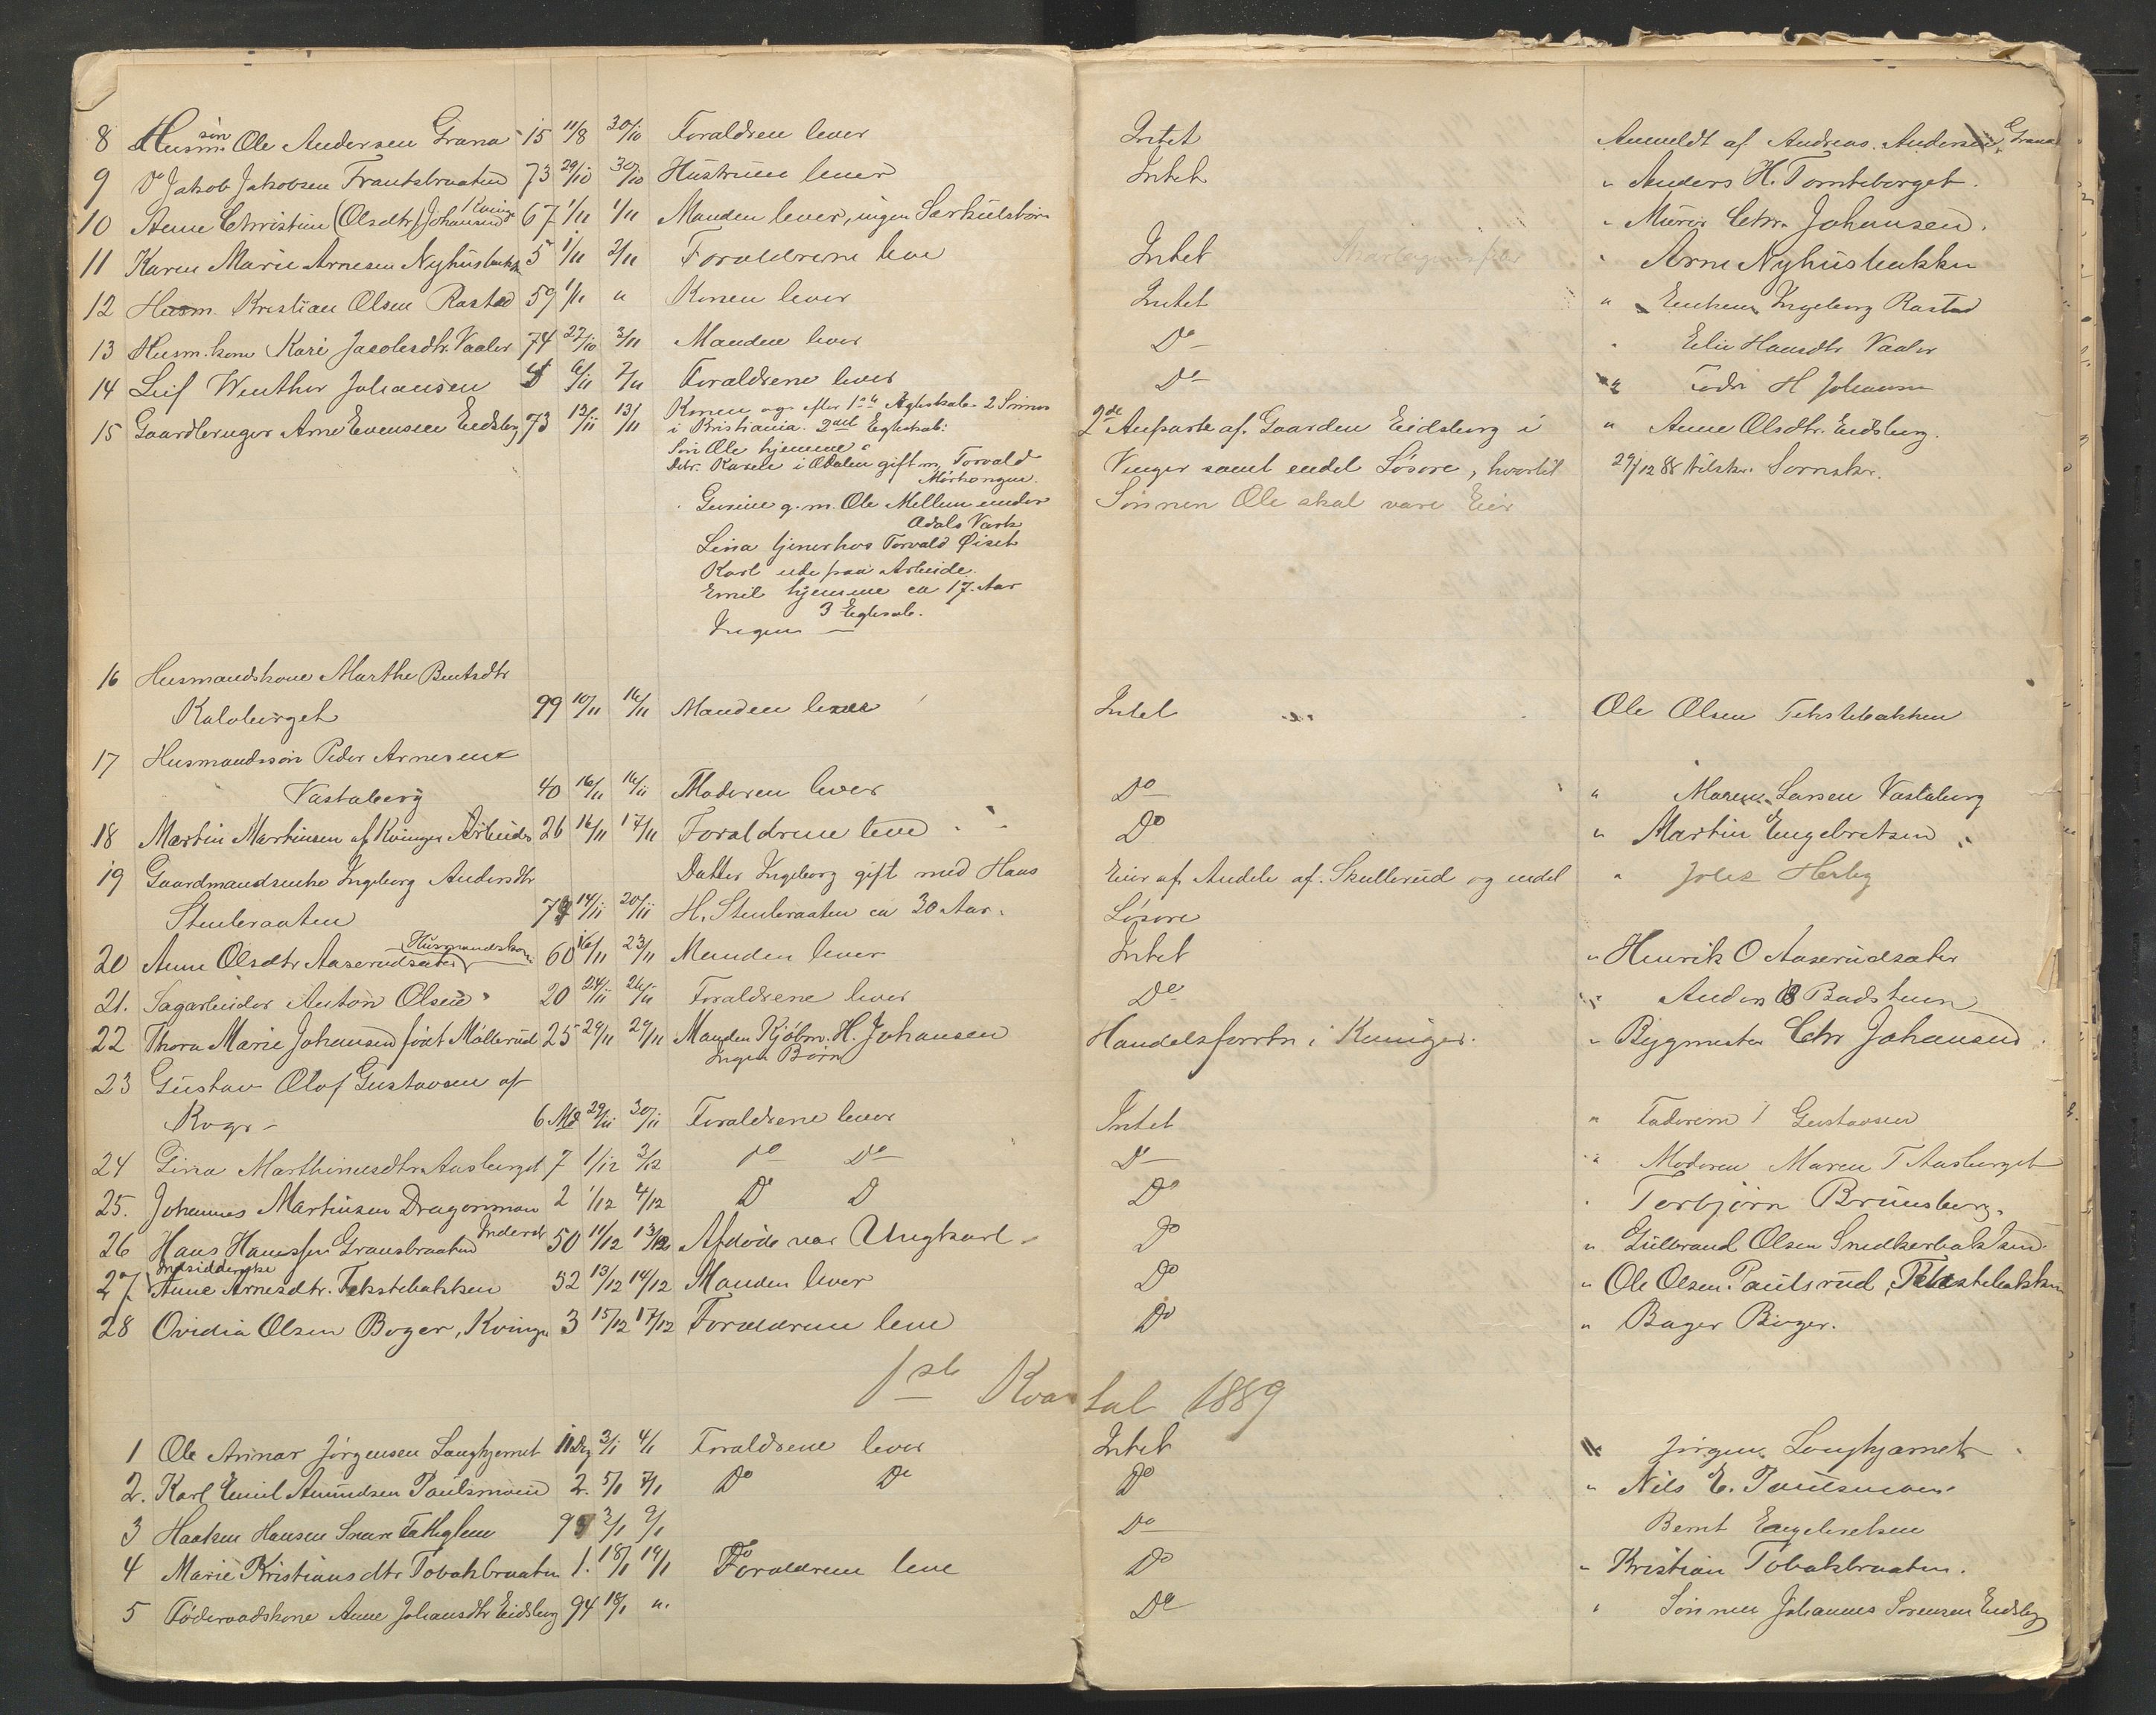 8 Husm.søn Ole Andersen Grana 15 11/8 30/10 Forældren lever Intet Anmeldt af Andreas Andersen Grana
9 Do Jakob Jakobsen Frantsbraaten 73 29/10 30/10 Hustruen lever Intet " Anders H. Tomteberget.
10 Anne Christine (Olsdtr) Johansen Kvinger 67 1/11 1/11 Manden lever, ingen Særkulsbörn " Murer Chr. Johansen.
11 Karen Marie Arnesen Nyhusbakk 5 1/11 2/11 Forældrene leve Intet " Arne Nyhusbakken
12 Husm. Kristian Olsen Rastad 59 1/11 " Konen lever Intet " Enken Ingeborg Rastad
13 Husm.kone Kari Jacobsdtr. Vaaler 74 27/10 3/11 Manden lever Do " Elie Hansdtr Vaaler
14 Leif Winther Johansen 6/11 7/11 Forældrene lever Do " H Johansen
15 Gaardbruger Arne Evensen Eidsberg 73 12/11 13/11 Konen og efter 1ste Ægteskab 2 Sønner
i Kristiania. 2det Egteskab: 2de Anparte af Gaarden Eidsberg i " Anne Olsdtr. Eidsberg.
Søn Ole hjemme
Dtr. Karele i Odalen gift m. Torvald Vinger samt endel Løsøre, hvortil 29/12 88 tilskr. Sornskr.
Gunine g. m. Ole Mellem under Sønnen Ole skal være Eier
Odals Værk
Lina tjener hos Torvald Øiset
Karl ude paa Arbeide.
Emil hjemme ca 17 Aar
Ingen 3 Egtesk.
16 Husmandskone Marthe Berntsdtr
Kalvberget 99 10/11 16/11 Manden lever Intet Ole Olsen Tekstebakken
17 Husmandssøn Peder Arnesen
Vastaberg 40 16/11 16/11 Moderen lever Do " Maren Larsen Vastaberg
18 Martin Martinsen af Kvinger Arbeider 26 16/11 17/11 Forældrene leve Do " Martin Engebretsen
19 Gaardmandsenke Ingeborg Andersdtr Datter Ingeborg gift med Hans Eier af Andele af Skullerud og endel " Johs Herby
Stenbraaten 14/11 20/11 H. Stenbraaten ca 30 Aar. Løsøre
20 Anne Olsdtr Aaserudsæter Husmandskone 60 16/11 23/11 Manden lever Intet " Henrik O Aaserudsæter
21. Sagarbeider Anton Olsen 20 24/11 26/11 Forældrene lever Do " Anders Badstuen
22 Thora Marie Johansen født Møllerud 25 29/11 29/11 Manden Kjøbm. H. Johansen Handelsforrtn i Kvinger. " Bygmester Chr Johansen.
Ingen Børn
23 Gustav Olof Gustavsen af
Roger 6 Md 29/11 30/11 Forældrene lever Intet " Faderen / Gustavsen
24 Gina Marthinusdtr Aasberget 7 1/12 3/12 Do Do Do " Moderen Maren T Aasberget
25. Johannes Martinsen Dragonmoen 2 1/12 4/12 D D Do " Torbjørn Brunsberg.
26 Hans Hansen Gransbraaten Inderst 50 11/12 13/12 Afdøde var Ungkarl. Do " Gulbrand Olsen Snedkerbakken.
27 Indsidderske Anne Arnesdtr. Tekstebakken 52 13/12 14/12 Manden lever Do " Ole Olsen Paulsrud, Tekstebakken
28 Ovidia Olsen Boger, Kvinger 3 15/12 17/12 Forældrene leve Do " Bager Boger.
1ste Kvartal 1889
1 Ole Arinar Jørgensen Langtjernet 11 Dg 3/1 4/1 Forældrene lever Intet " Jørgen Langtjærnet
2. Karl Emil Amundsen Paulsmoen 2. 5/1 7/1 Do Do Do " Nils E. Paulsmoen.
3 Haaken Hansen Snare Fattiglem 3/1 9/1 Do Bernt Engebretsen
4 Marie Kristiansdtr Tobakbraaten 1. 18/1 19/1 Forældrene leve Do " Kristian Tobakbraaten.
5 Føderaadskone Anne Johansdtr Eidsberg 94 18/1 ". Do " Sønnen Johannes Sørensen Eidsberg